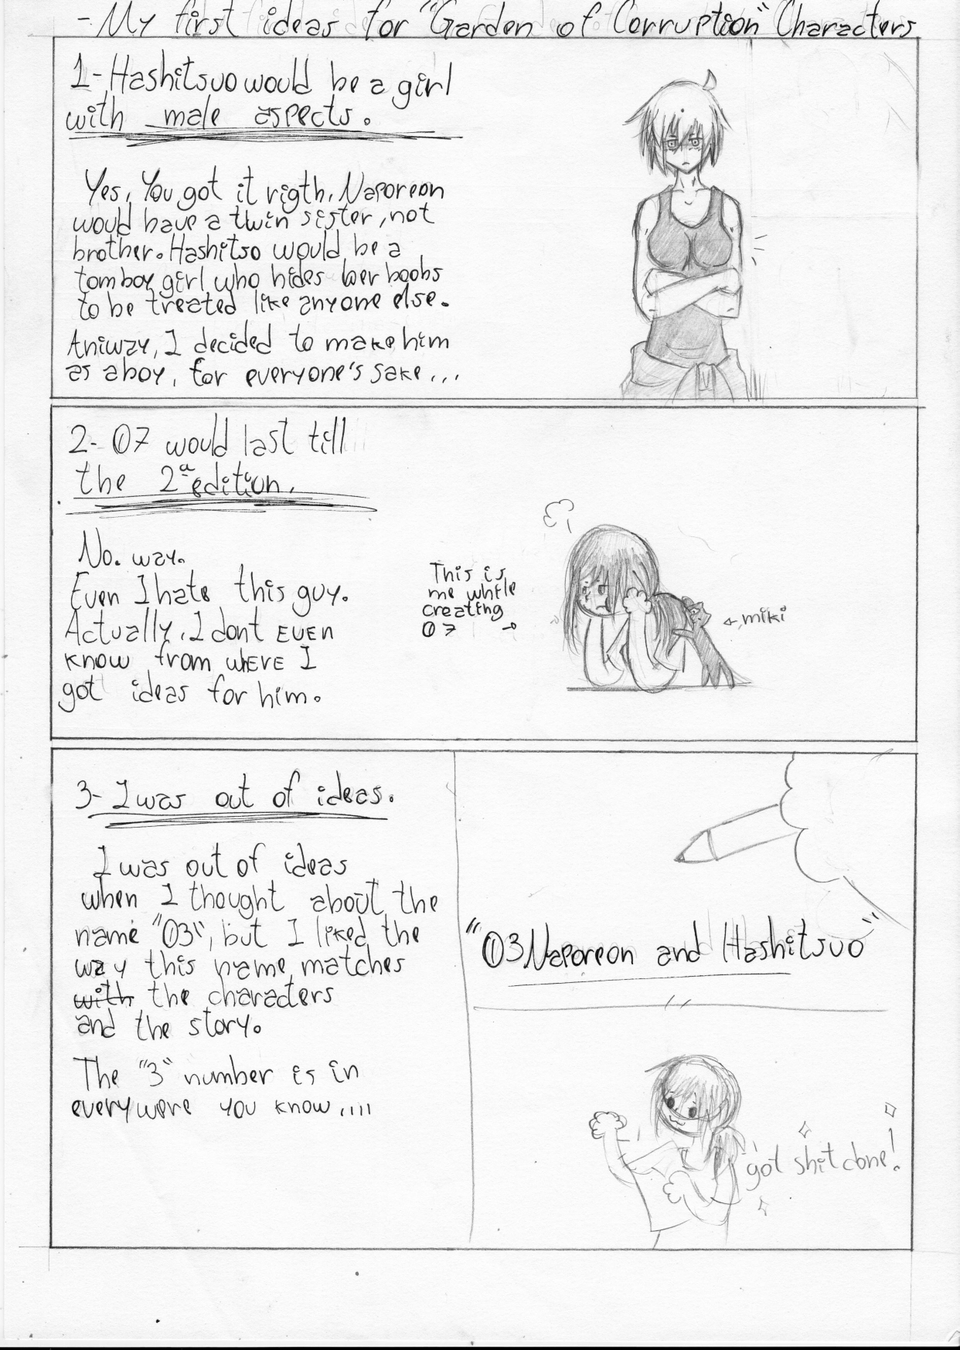 -My first ideas for "Garden of Corruption" Characters
1-Hashitsuo would be a girl
with male aspects.
Yes, You got it rigth, Naporeon
would have a twin sister, not
brother. Hashitso would be a
tomboy girl who hides her boobs
to be treated like anyone else.
Aniway, I decided to make him
as a boy, for everyone's sake...
2- 07 would last till
the 2ª edition.
No. way.
Even I hate this guy.
Actually, I dont EVEN
know from wHERE I
got ideas for him.
This is
me while
creating
07
miki
3-I was out of ideas.
I was out of ideas
when I thought about the
name "03", but I liked the
way this name matches
with the characters
and the story.
The "3" number is in
everywere you know....
"03 Naporeon and Hashitsuo"
got shit done!